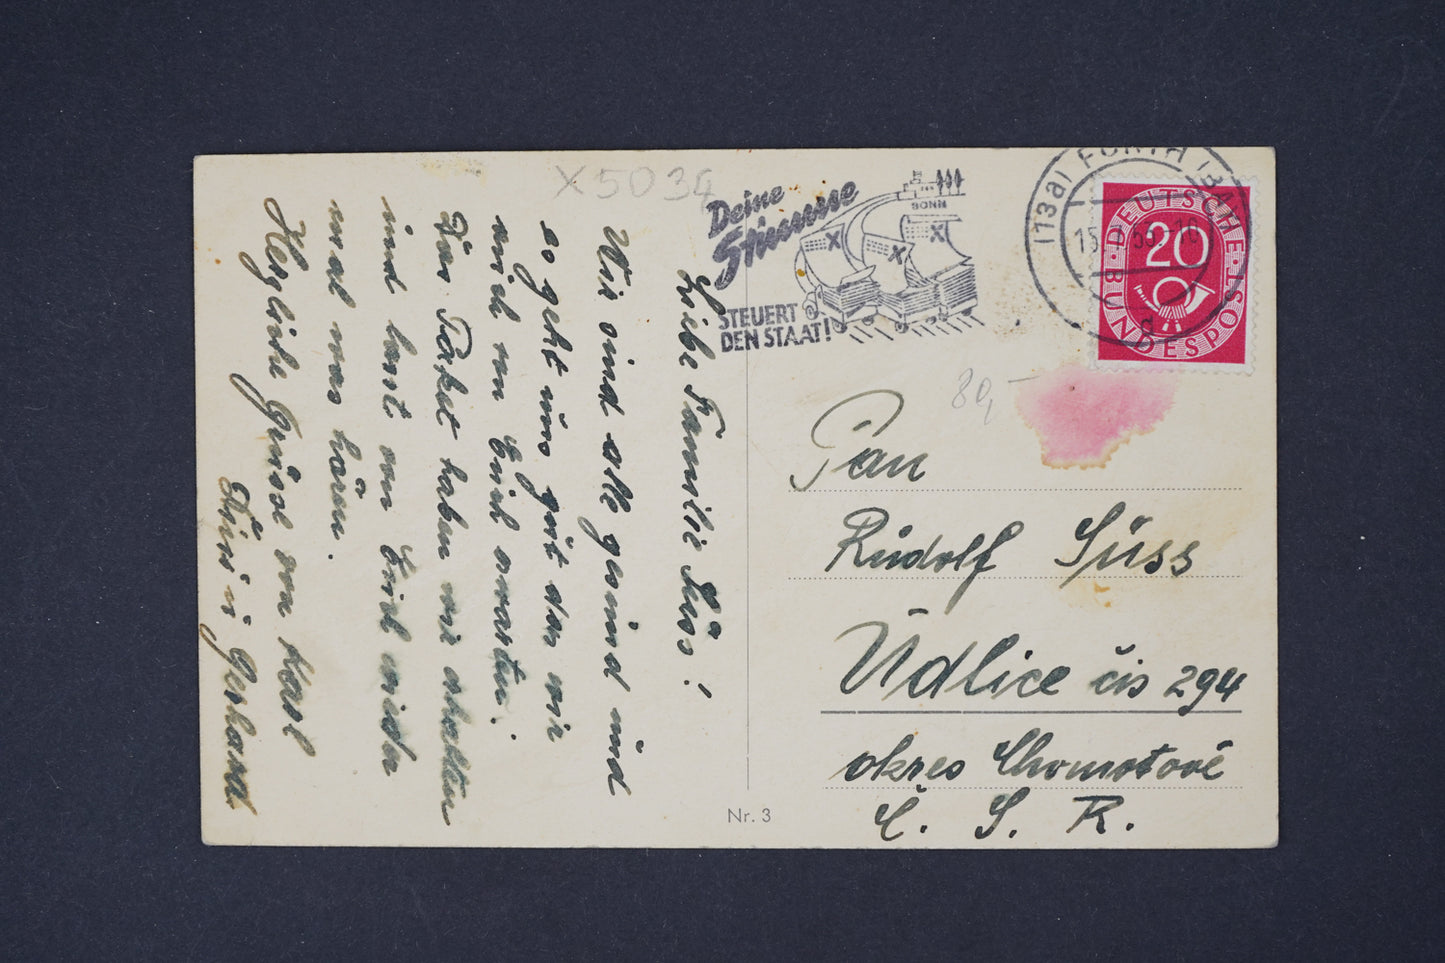 X5034
Deine
Stimme
STEUERT
DEN STAAT!
BONN
(13a) FÜRTH (BAY)
15. 53.-10
d
DEUTSCHE BUNDESPOST
20
80,-
Liebe Familie Süss!
Wir sind alle gesund und
es geht uns gut das wir
auch von Euch erwarten.
Das Paket haben wir erhalten
und lasst von Euch wieder
mal was hören.
Herzliche Grüsse von Karl
u Gerhard
Pan
Rudolf Süss
Údlice čis 294
okres Chomotově
Č. S. R.
Nr. 3